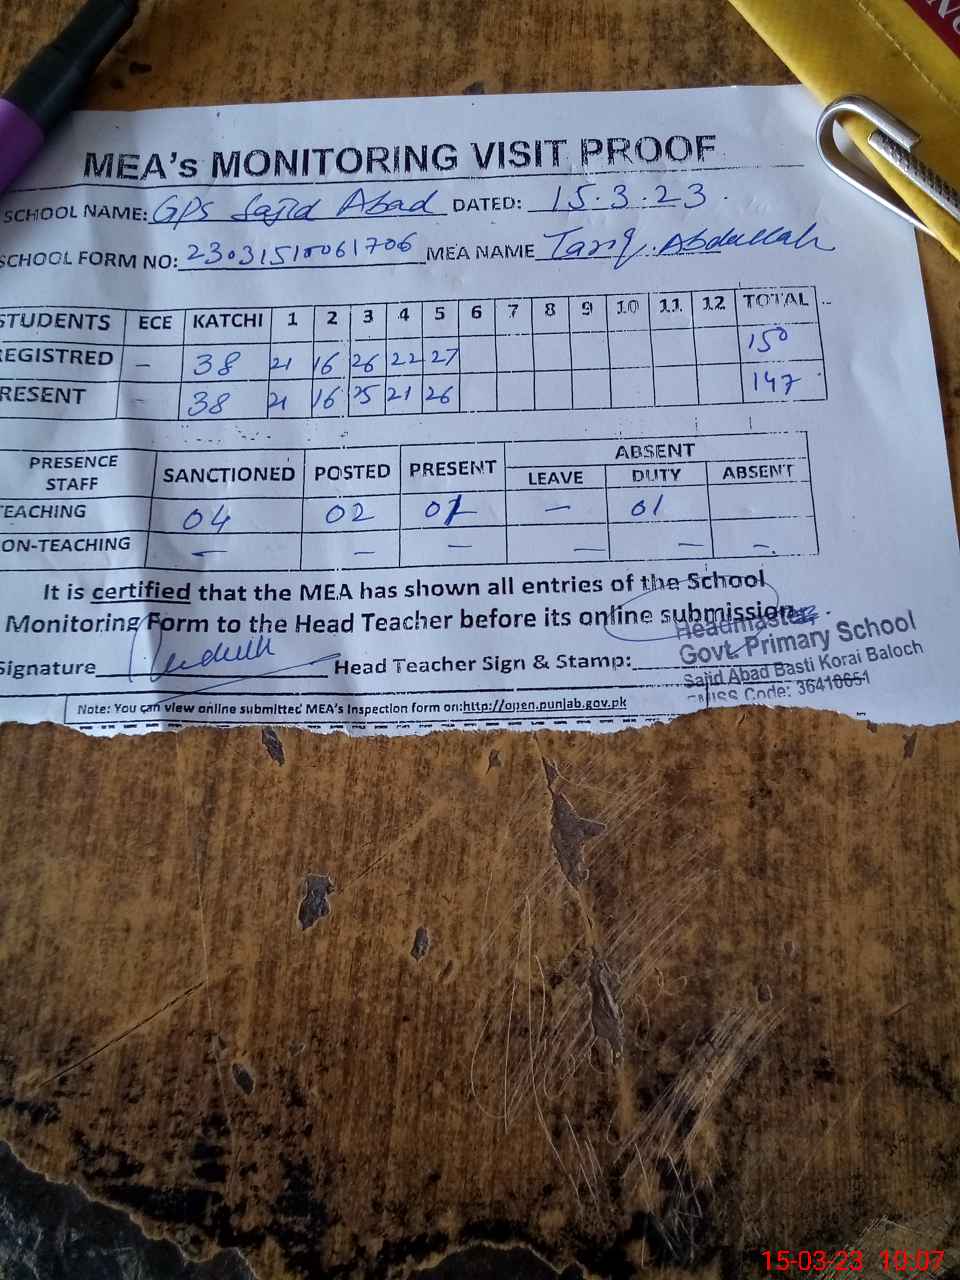 MEA's MONITORING VISIT PROOF
SCHOOL NAME: GPS Sajid Abad DATED: 15.3.23.
SCHOOL FORM NO: MEA NAME Tariq Abdullah
STUDENTS ECE KATCHI 1 2 3 4 5 6 7 8 9 10 11 12 TOTAL
REGISTRED – 38 21 16 26 22 27 150
RESENT – 38 21 16 25 21 26 147
PRESENCE STAFF SANCTIONED POSTED PRESENT ABSENT
LEAVE DUTY ABSENT
TEACHING 04 02 01 – 01
ON-TEACHING – – – – – –
It is certified that the MEA has shown all entries of the School
Monitoring Form to the Head Teacher before its online submission.
Signature Head Teacher Sign & Stamp:
Headmaster
Govt. Primary School
Sajid Abad Basti Korai Baloch
Code: 36410651
Note: You can view online submitted MEA's Inspection form on:http://open.punjab.gov.pk
15-03-23 10:07